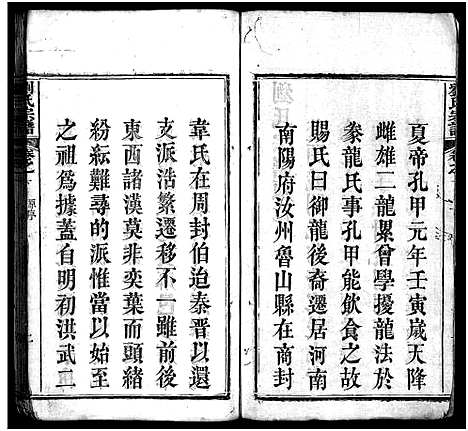 夏帝孔甲元年壬寅歲天降
雌雄二龍累曾學擾龍法於
豢龍氏事孔甲能飲食之故
賜氏曰御龍後裔遷居河南
南陽府汝州魯山縣在商封
韋氏在周封伯迨秦晋以還
支派浩繁遷移不一雖前後
東西諸漢莫非奕葉而頭緒
紛紜難尋的派惟當以始至
之祖爲據蓋自明初洪武二
劉氏宗譜